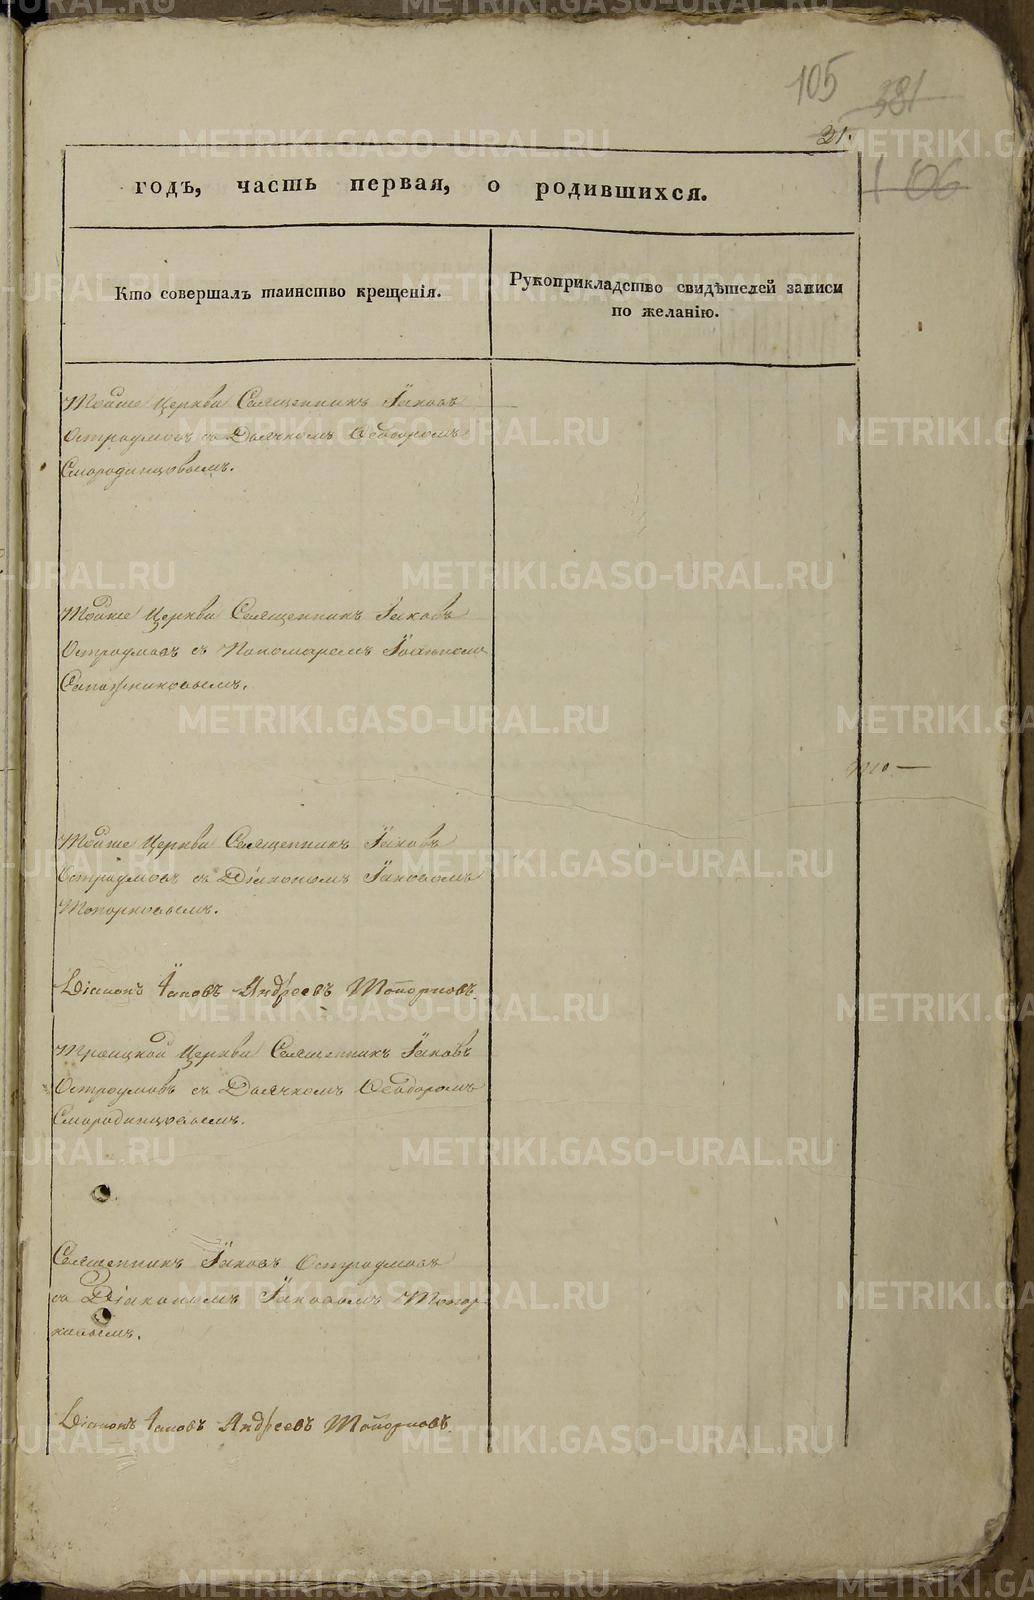 105
381
21.
106
годъ, часть первая, о родившихся.
Кто совершалъ таинство крещенія.
Рукоприкладство свидѣтелей записи
по желанію.
Тойже Церкви Священникъ Іаковъ
Остроумовъ съ Дьячкомъ Ѳеодоромъ
Смородинцовымъ.
Тойже Церкви Священникъ Іаковъ
Остроумовъ съ Пономаремъ Іоанномъ
Сапожниковымъ.
Тойже Церкви Священникъ Іаковъ
Остроумовъ съ Діякономъ Іаковомъ
Топорковымъ.
Діаконъ Іаковъ Андреевъ Топорковъ.
Троицкой Церкви Священникъ Іаковъ
Остроумовъ съ Дьячкомъ Ѳеодоромъ
Смородинцовымъ.
Священникъ Іаковъ Остроумовъ
съ Діякономъ Іаковомъ Топор-
ковымъ.
Діаконъ Іаковъ Андреевъ Топорковъ.
METRIKI.GASO-URAL.RU